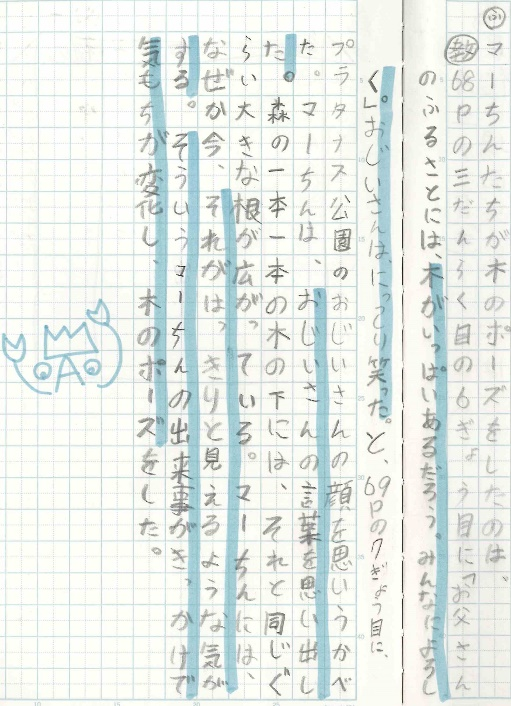 ㋫マーちんたちが木のポーズをしたのは、
教68Pの三だんらく目の6ぎょう目に「お父さん
のふるさとには、木がいっぱいあるだろう。みんなによろし
く」。おじいさんは、にっこり笑った。と、69Pの7ぎょう目に、
プラタナス公園のおじいさんの顔を思いうかべ
た。マーちんは、おじいさんの言葉を思い出し
た。森の一本一本の木の下には、それと同じぐ
らい大きな根が広がっている。マーちんには、
なぜか今、それがはっきりと見えるような気が
する。そういうマーちんの出来事がきっかけで
気もちが変化し、木のポーズをした。